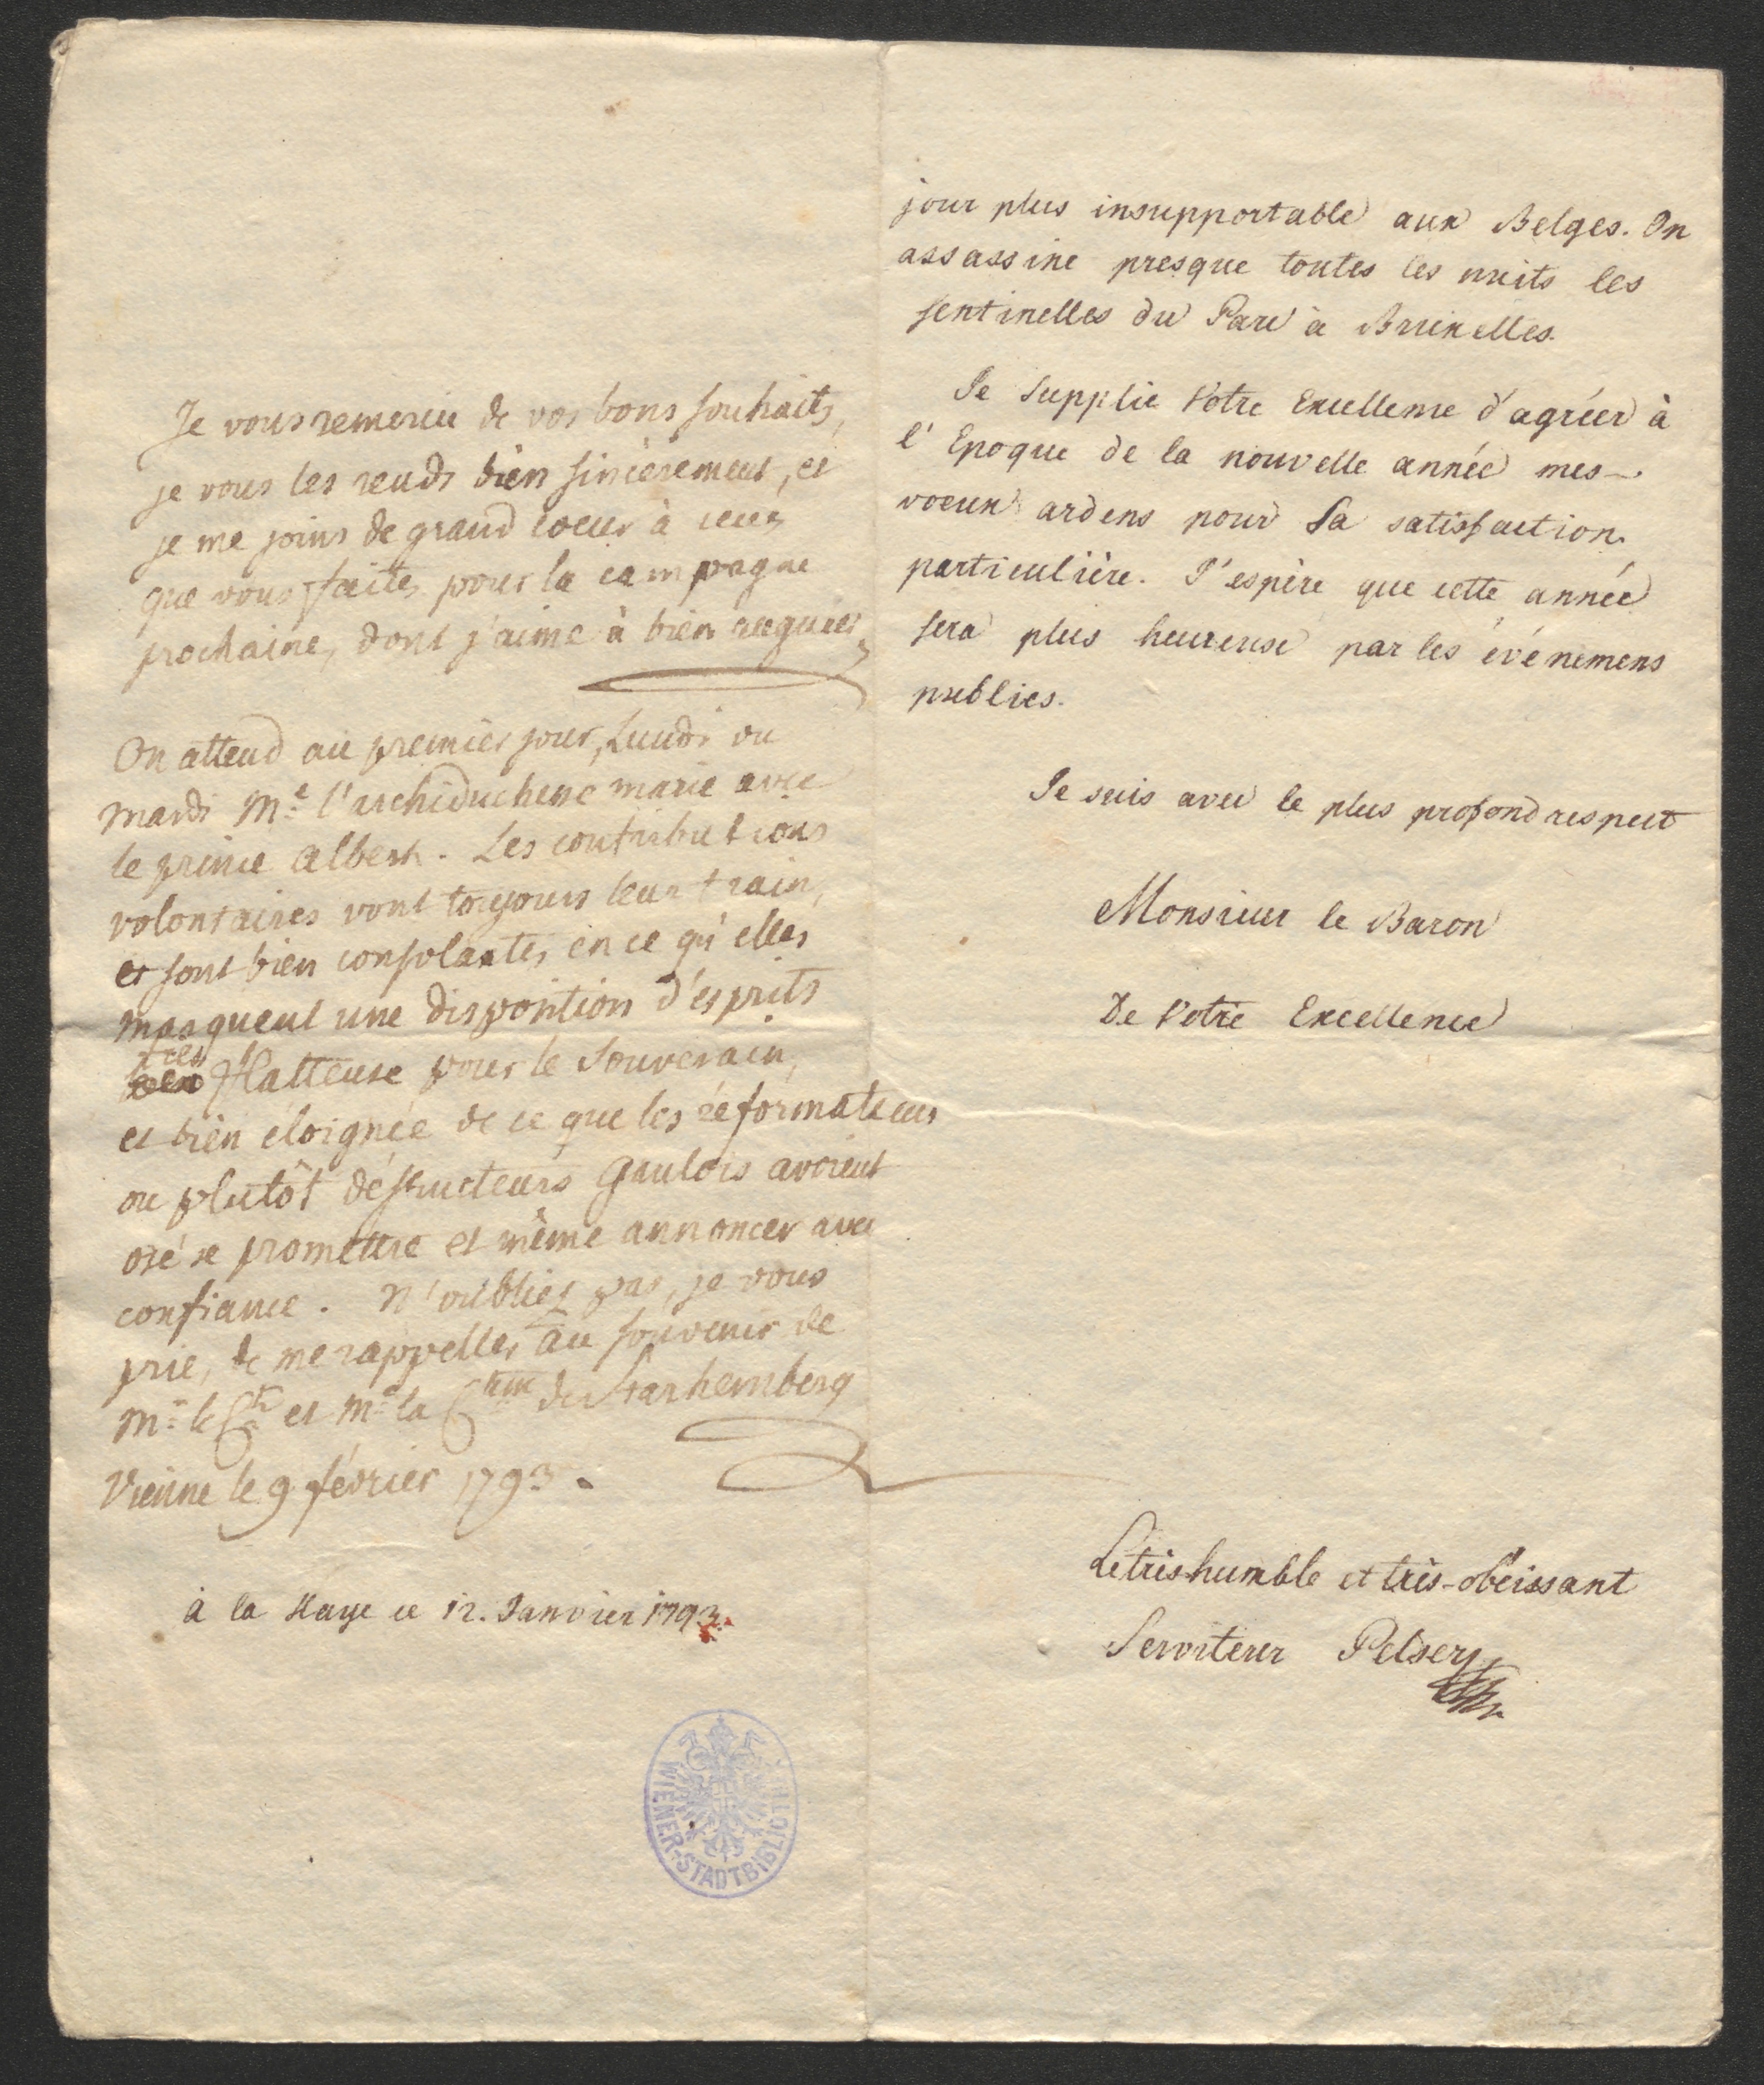 Je vous remercie de vos bons souhaits,
je vous les rends bien sincèrement, et
je me joins de grand coeur à ceux
que vous faites pour la campagne
prochaine, dont j'aime à bien augurer,
On attend au premier jour, Lundi ou
mardi Me l'archiduchesse marie avec
le prince Albert. Les contributions
volontaires vont toujours leur train,
et sont bien consolantes, en ce qu'elles
masquent une disposition d'esprits
très flatteuse pour le Souverain,
et bien éloignée de ce que les réformateurs
ou plutôt déstructeurs Gaulois avoient
osé se promettre et même annoncer avec
confiance. N'oubliez pas, je vous
prie, de me rappeller au souvenir de
Mr le Cte et Me la Ctesse de Starhemberg
Vienne le 9 février 1793.
à la Haye ce 12. Janvier 1793.
WIENER-STADTBIBLIOTHEK
jour plus insupportable aux Belges. On
assassine presque toutes les nuits les
sentinelles du Parc à Bruxelles.
Je supplie Votre Excellence d'agréer à
l'Epoque de la nouvelle année mes
voeux ardens pour Sa satisfaction
particulière. J'espère que cette année
sera plus heureuse par les événemens
publics.
Je suis avec le plus profond respect
Monsieur le Baron
De Votre Excellence
Le très humble et très-obéissant
Serviteur Pelser